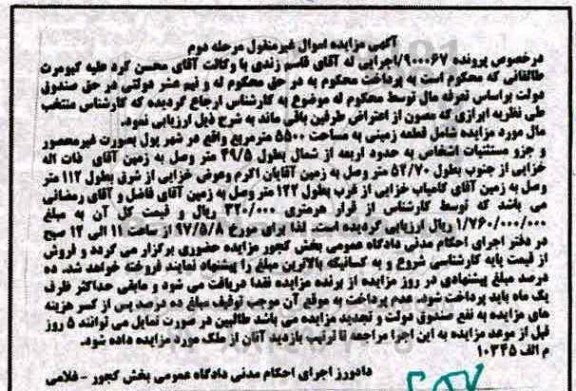 آگهی مزایده اموال غیرمنقول مرحله دوم
درخصوص پرونده ۹۰۰۰۶۷/اجرایی له آقای قاسم زندی با وکالت آقای محسن گرد علیه کیومرث
طالقانی که محکوم است به پرداخت محکوم به در حق محکوم له و نیم عشر دولتی در حق صندوق
دولت براساس تعرفه مال توسط محکوم له موضوع به کارشناس ارجاع گردیده که کارشناس منتخب
طی نظریه ابرازی که مصون از اعتراض طرفین باقی ماند به شرح ذیل ارزیابی نمود.
مال مورد مزایده شامل قطعه زمینی به مساحت ۵۵۰۰ مترمربع واقع در شهر پول بصورت غیرمحصور
و جزو مستثنیات اشخاص به حدود اربعه از شمال بطول ۳۹/۵ متر وصل به زمین آقای ذات اله
خزایی از جنوب بطول ۵۴/۷۰ متر وصل به زمین آقایان اکرم وعوض خزایی از شرق بطول ۱۱۲ متر
وصل به زمین آقای کامیاب خزایی از غرب بطول ۱۲۲ متر وصل به زمین آقای فاضل و آقای رمضانی
می باشد که توسط کارشناس از قرار هرمتری ۳۲۰/۰۰۰ ریال و قیمت کل آن به مبلغ
۱/۷۶۰/۰۰۰/۰۰۰ ریال ارزیابی گردیده است. لذا برای مورخ ۹۷/۵/۸ از ساعت ۱۱ الی ۱۲ صبح
در دفتر اجرای احکام مدنی دادگاه عمومی بخش کجور مزایده حضوری برگزار می گردد و فروش
از قیمت پایه کارشناسی شروع و به کسانیکه بالاترین مبلغ را پیشنهاد نمایند فروخته خواهد شد. ده
درصد مبلغ پیشنهادی در روز مزایده از برنده مزایده نقدا دریافت می شود و مابقی حداکثر ظرف
یک ماه باید پرداخت شود. عدم پرداخت به موقع آن موجب توقیف مبلغ ده درصد پس از کسر هزینه
های مزایده به نفع صندوق دولت و تجدید مزایده می باشد طالبین در صورت تمایل می توانند ۵ روز
قبل از موعد مزایده به این اجرا مراجعه تا ترتیب بازدید آنان از ملک مورد مزایده داده شود.
م الف ۱۰۳۴۵
دادورز اجرای احکام مدنی دادگاه عمومی بخش کجور - غلامی